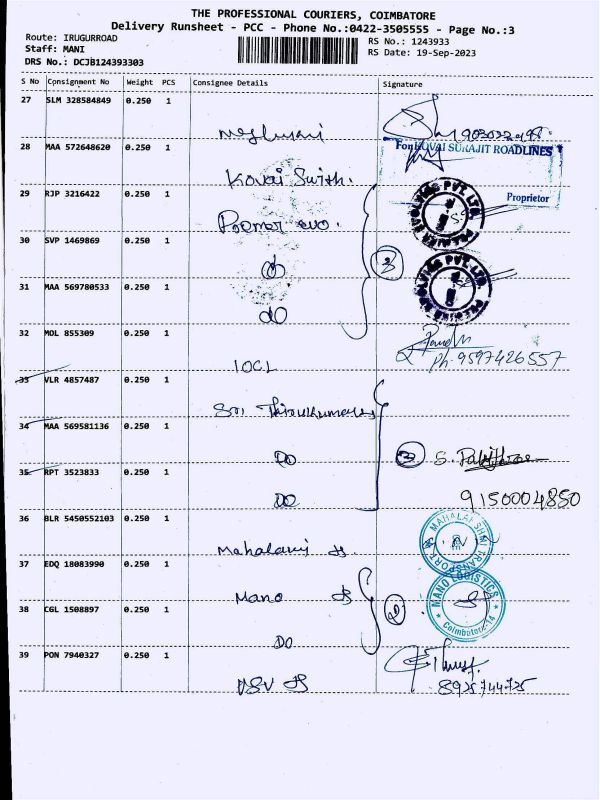 THE PROFESSIONAL COURIERS, COIMBATORE
Delivery Runsheet - PCC - Phone No.:0422-3505555 - Page No.:3
Route: IRUGURROAD
Staff: MANI
DRS No.: DCJB124393303
RS No.: 1243933
RS Date: 19-Sep-2023
S No Consignment No Weight PCS Consignee Details Signature
27 SLM 328584849 0.250 1
28 MAA 572648620 0.250 1
For KOVAI SURAJIT ROADLINES
Proprietor
Kovai
29 RJP 3216422 0.250 1
30 SVP 1469869 0.250 1
do
3
31 MAA 569780533 0.250 1
do
32 MOL 855309 0.250 1
Ph. 9597426557
IOCL
33 VLR 4857487 0.250 1
Sri
34 MAA 569581136 0.250 1
DO
3
S.
35 RPT 3523833 0.250 1
DO
9150004850
36 BLR 5450552103 0.250 1
MAHALAKSHMI TRANSPORT
37 EDQ 18083990 0.250 1
Mano
MANO LOGISTICS
Coimbatore-14
38 CGL 1508897 0.250 1
DO
2
39 PON 7940327 0.250 1
8925744725